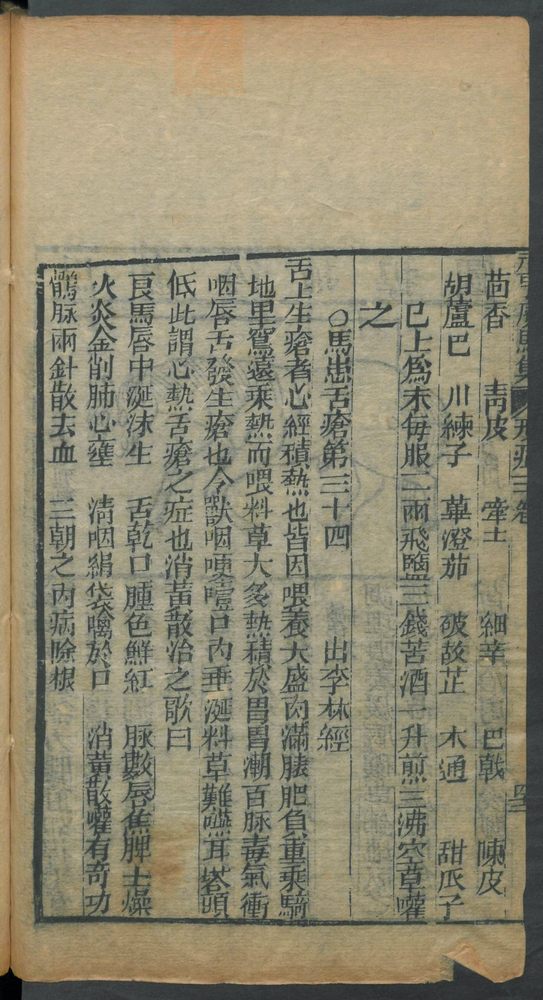 茴香　青皮　牽牛　細辛　巴戟　陳皮
胡蘆巴　川練子　蓽澄茄　破故芷　木通　甜瓜子
已上爲末每服二兩飛鹽三錢苦酒一升煎三沸空草嚾
之
○馬患舌瘡第三十四　出李林經
舌上生瘡者心經積熱也皆因喂養大盛肉滿膘肥負重乘騎
地里窵遠乘熱而喂料草大多熱積於胃胃潮百脉毒氣衝
咽唇舌發生瘡也令獸咽哽噎口內垂涎料草難嚥耳搭頭
低此謂心熱舌瘡之症也消黃散治之歌曰
良馬唇中涎沫生　舌乾口腫色鮮紅　脉數唇焦脾土燥
火炎金削肺心壅　清咽絹袋噙於口　消黃散嚾有奇功
鶻脉兩針散去血　三朝之內病除根